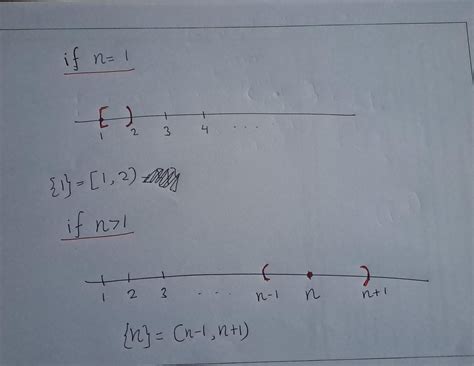 if n=1
[ )
1 2 3 4 ...
{1}=[1,2)
if n>1
( )
1 2 3 ... n-1 n n+1
{n}=(n-1,n+1)